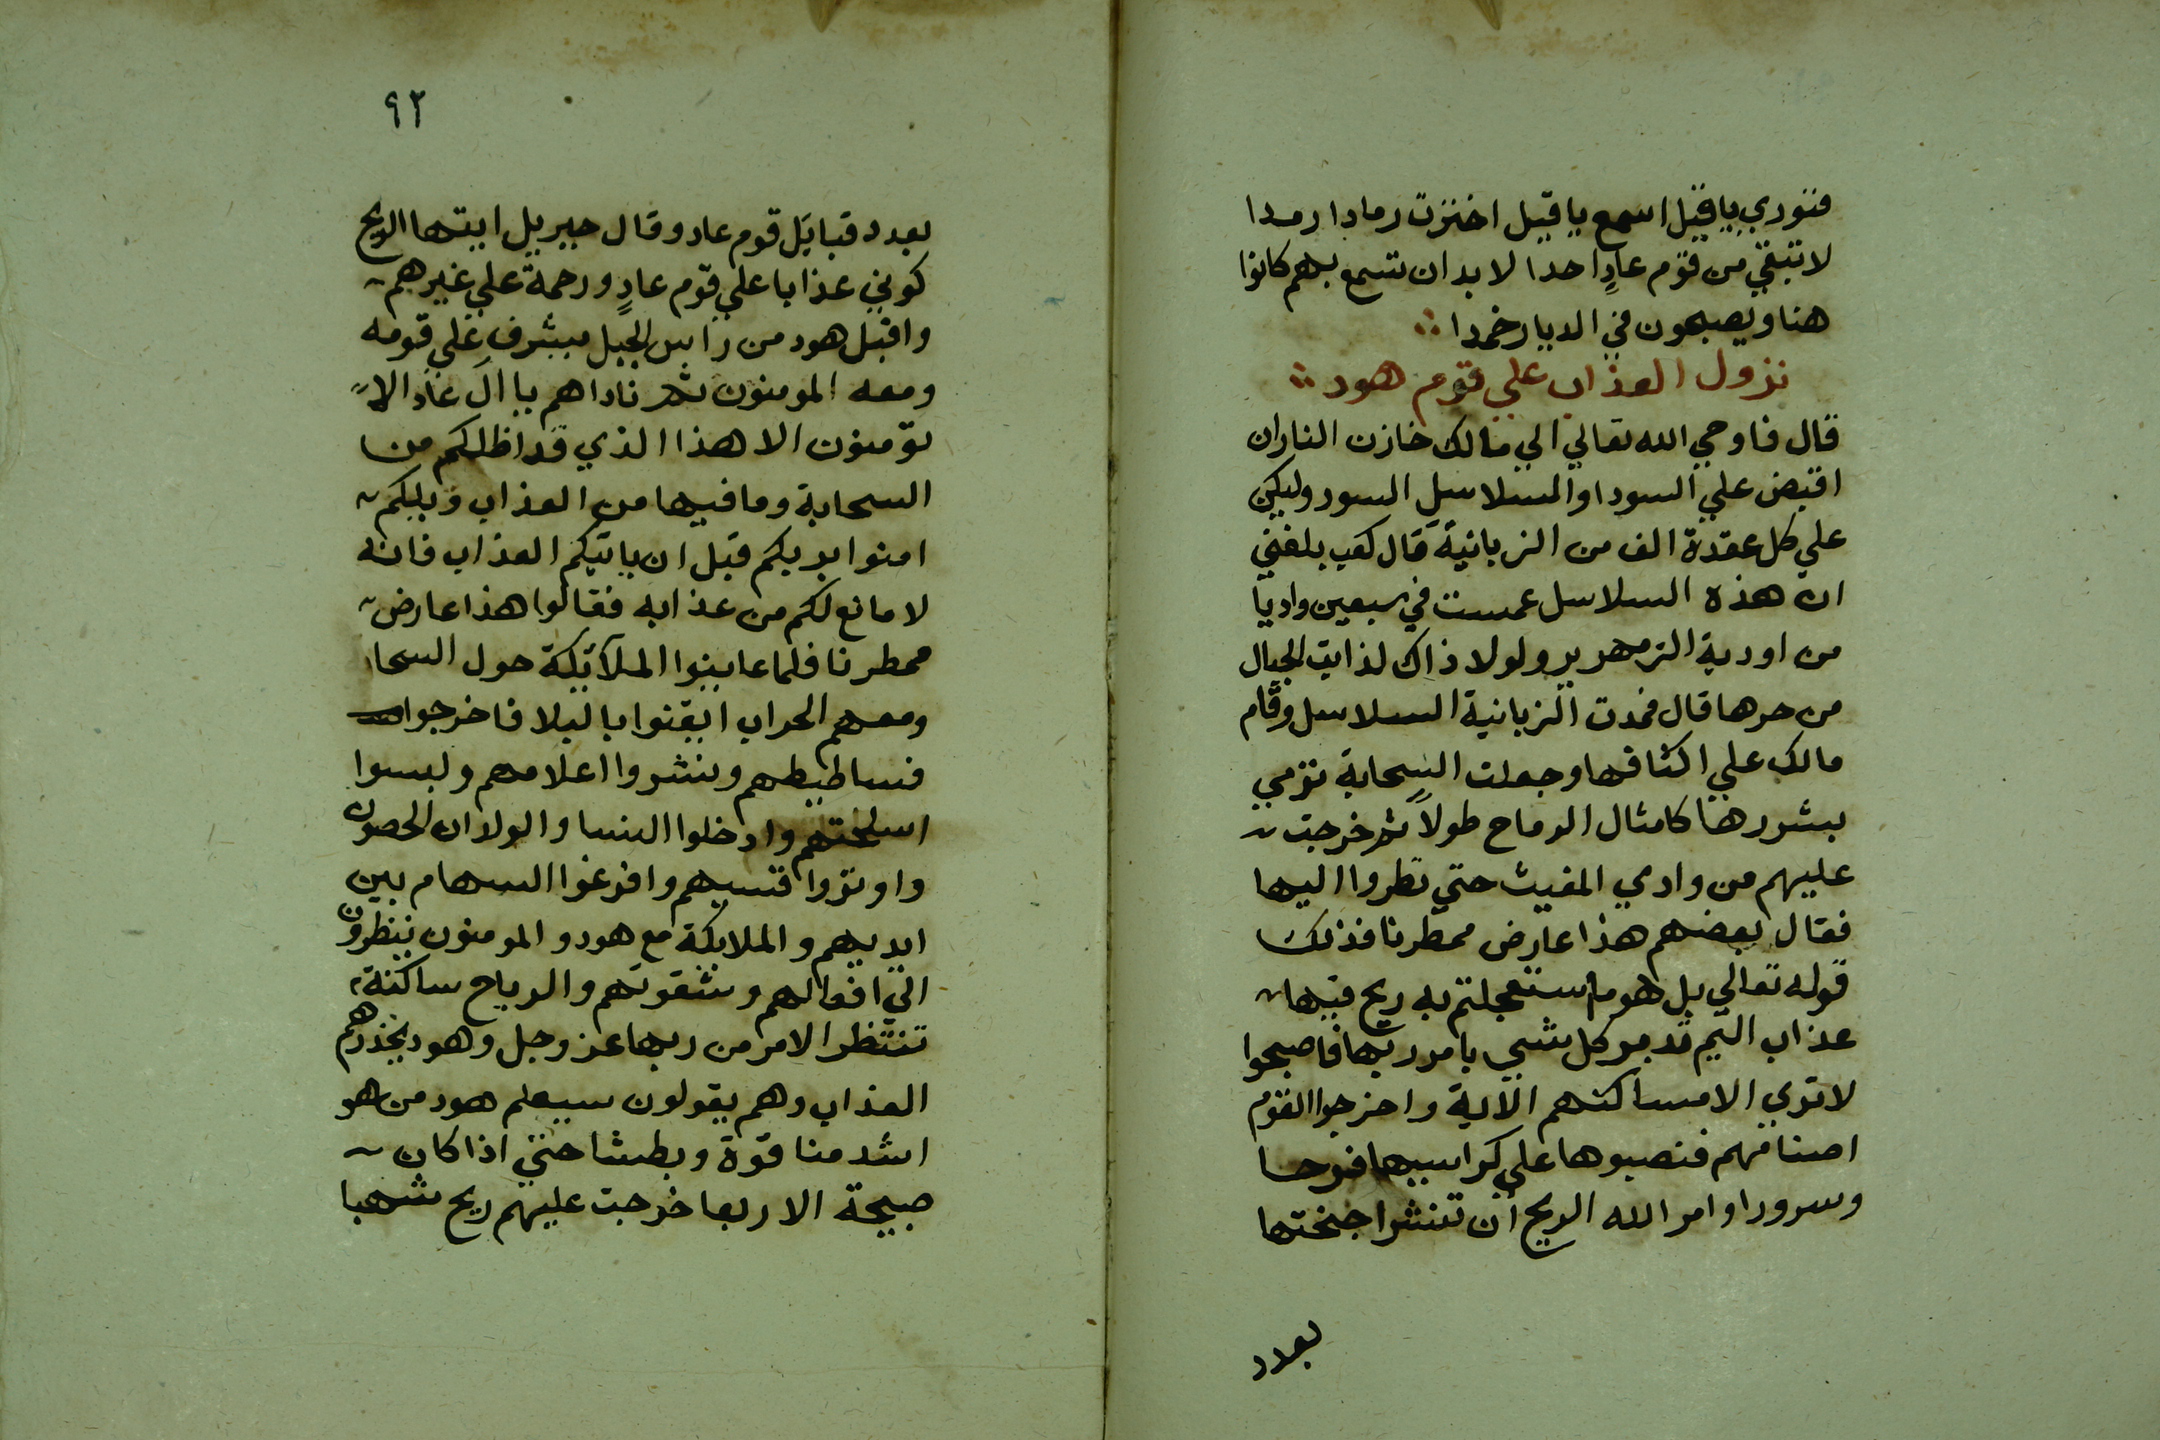 فنودي يا قيل اسمع يا قيل اخترت رمادا رمدا
لا تبقي من قوم عادٍ احدا لا بد ان تسمع بهم كانوا
هنا ويصبحون في الديار خمدا
نزول العذاب علي قوم هود
قال فاوحي الله تعالي الي مالك خازن النار ان
اقبض علي السودا والسلاسل السود وليكن
علي كل عقدة الف من الزبانية قال كعب بلغني
ان هذه السلاسل غمست في سبعين واديا
من اودية الزمهرير ولولا ذاك لذابت الجبال
من حرها قال فمدت الزبانية السلاسل وقام
مالك علي اكتافها وجعلت السحابة ترمي
بشررها كامثال الرماح طولاً ثم خرجت
عليهم من وادي المغيث حتي نظروا اليها
فقال بعضهم هذا عارض ممطرنا فذلك
قوله تعالي بل هو ما استعجلتم به ريح فيها
عذاب اليم تدمر كل شي بامر ربها فاصبحوا
لا تري الا مساكنهم الآية واخرجوا القوم
اصنامهم فنصبوها علي كراسيها فرحا
وسرورا وامر الله الريح ان تنشر اجنحتها
بعدد
٩٢
بعدد قبايل قوم عاد وقال جبريل ايتها الريح
كوني عذابا علي قوم عادٍ ورحمة علي غيرهم
واقبل هود من راس الجبل يشرف علي قومه
ومعه المومنون ثم ناداهم يا ال عاد الا
تؤمنون الا هذا الذي قد اظلكم من
السحابة وما فيها من العذاب ويلكم
امنوا بربكم قبل ان ياتيكم العذاب فانه
لا مانع لكم من عذابه فقالوا هذا عارض
ممطرنا فلما عاينوا الملآئكة حول السحا
ومعهم الحراب ايقنوا بالبلا فاخرجوا
فساطيطهم ونشروا اعلامهم ولبسوا
اسلحتهم وادخلوا النسا والولدان الحصون
واوتروا قسيهم وافرغوا السهام بين
ايديهم والملايكة مع هود والمومنون ينظرون
الي افعالهم وشقوتهم والرياح ساكنة
تنتظر الامر من ربها عز وجل وهود يحذرهم
العذاب وهم يقولون سيعلم هود من هو
اشد منا قوة وبطشا حتي اذا كان
صبيحة الاربعا خرجت عليهم ريح شهبا